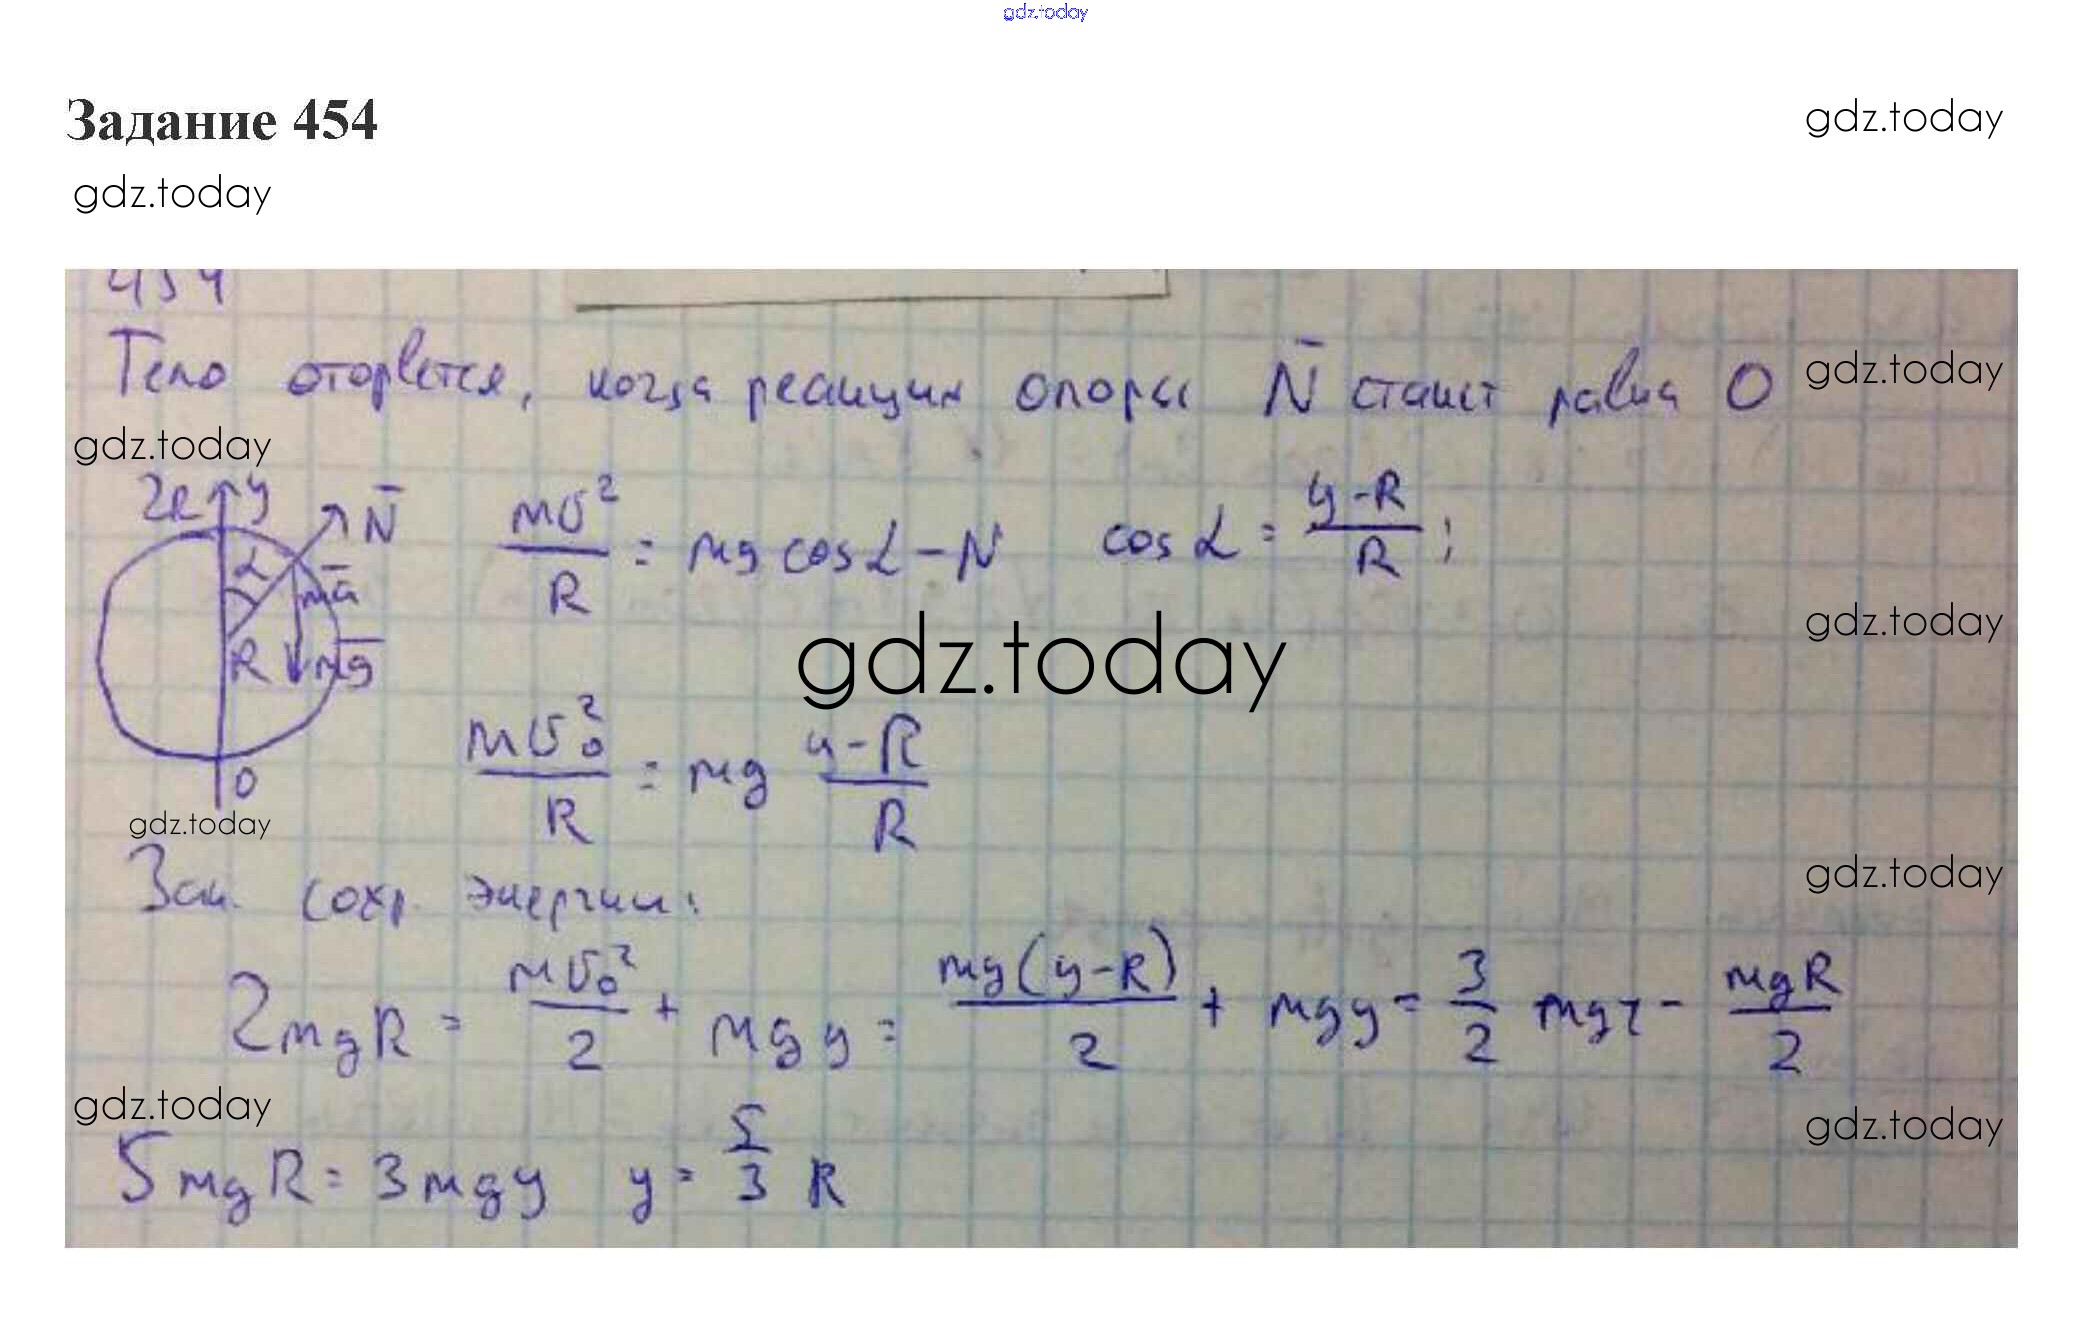 gdz.today
Задание 454
gdz.today
gdz.today
454
Тело оторвется, когда реакция опоры N̄ станет равна 0
gdz.today
gdz.today
2R y N̄
α mā
R mḡ
0
mv²/R = mg cos α - N cos α = (y-R)/R ;
gdz.today
gdz.today
mv₀²/R = mg (y-R)/R
gdz.today
Зак. сохр. энергии:
gdz.today
2mgR = mv₀²/2 + mgy = mg(y-R)/2 + mgy = 3/2 mgy - mgR/2
gdz.today
gdz.today
5mgR = 3mgy y = 5/3 R